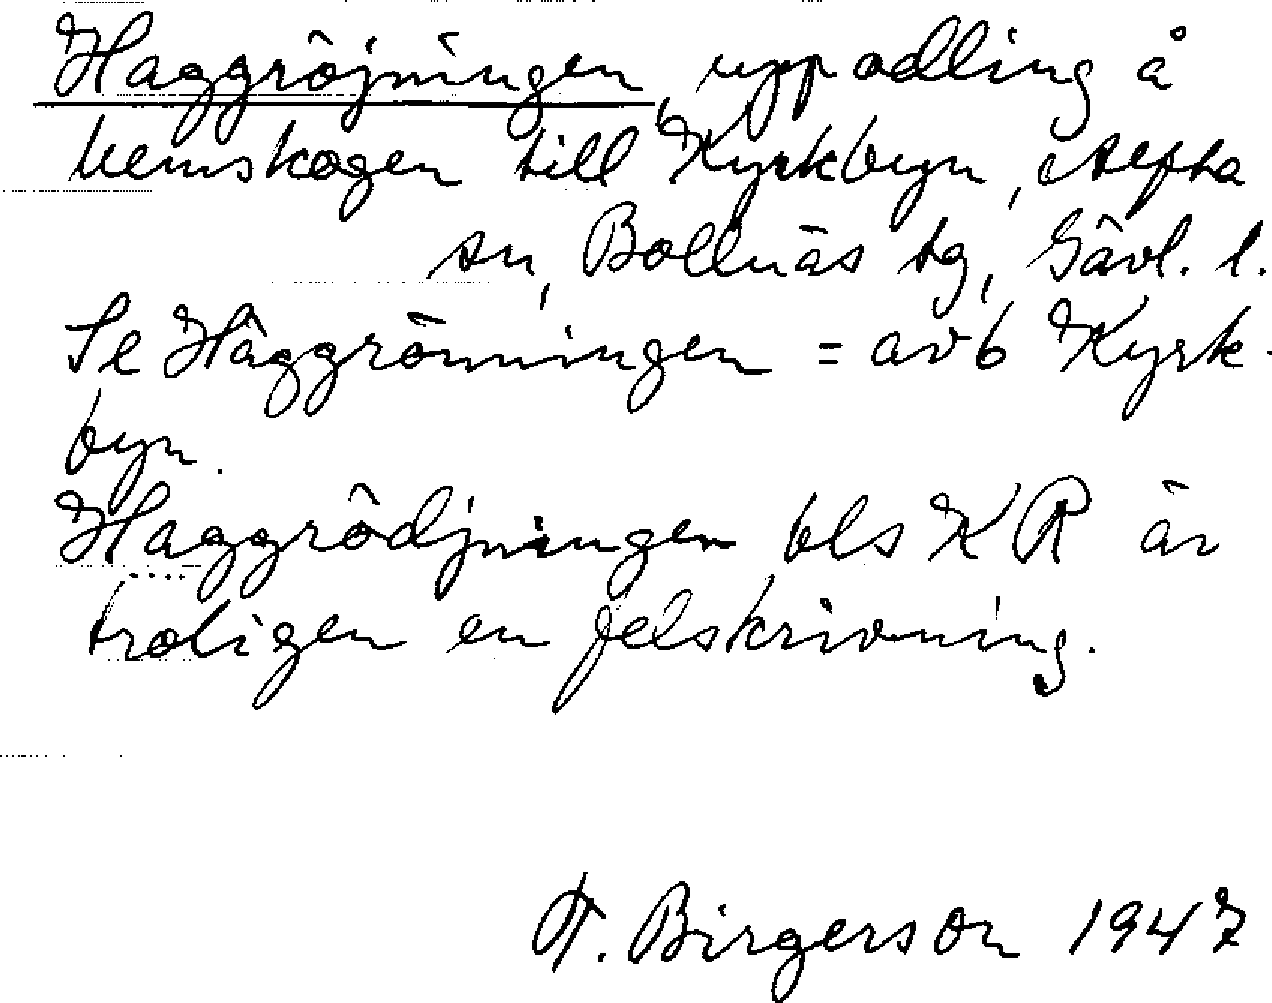 Haggröjningen, uppodling å
hemskogen till Kyrkbyn, Alfta
sn, Bollnäs tg, Gävl. l.
Se Häggrönningen = avb Kyrk-
byn.
Haggrödjningen bls KR är
troligen en felskrivning.
T. Birgerson 1947